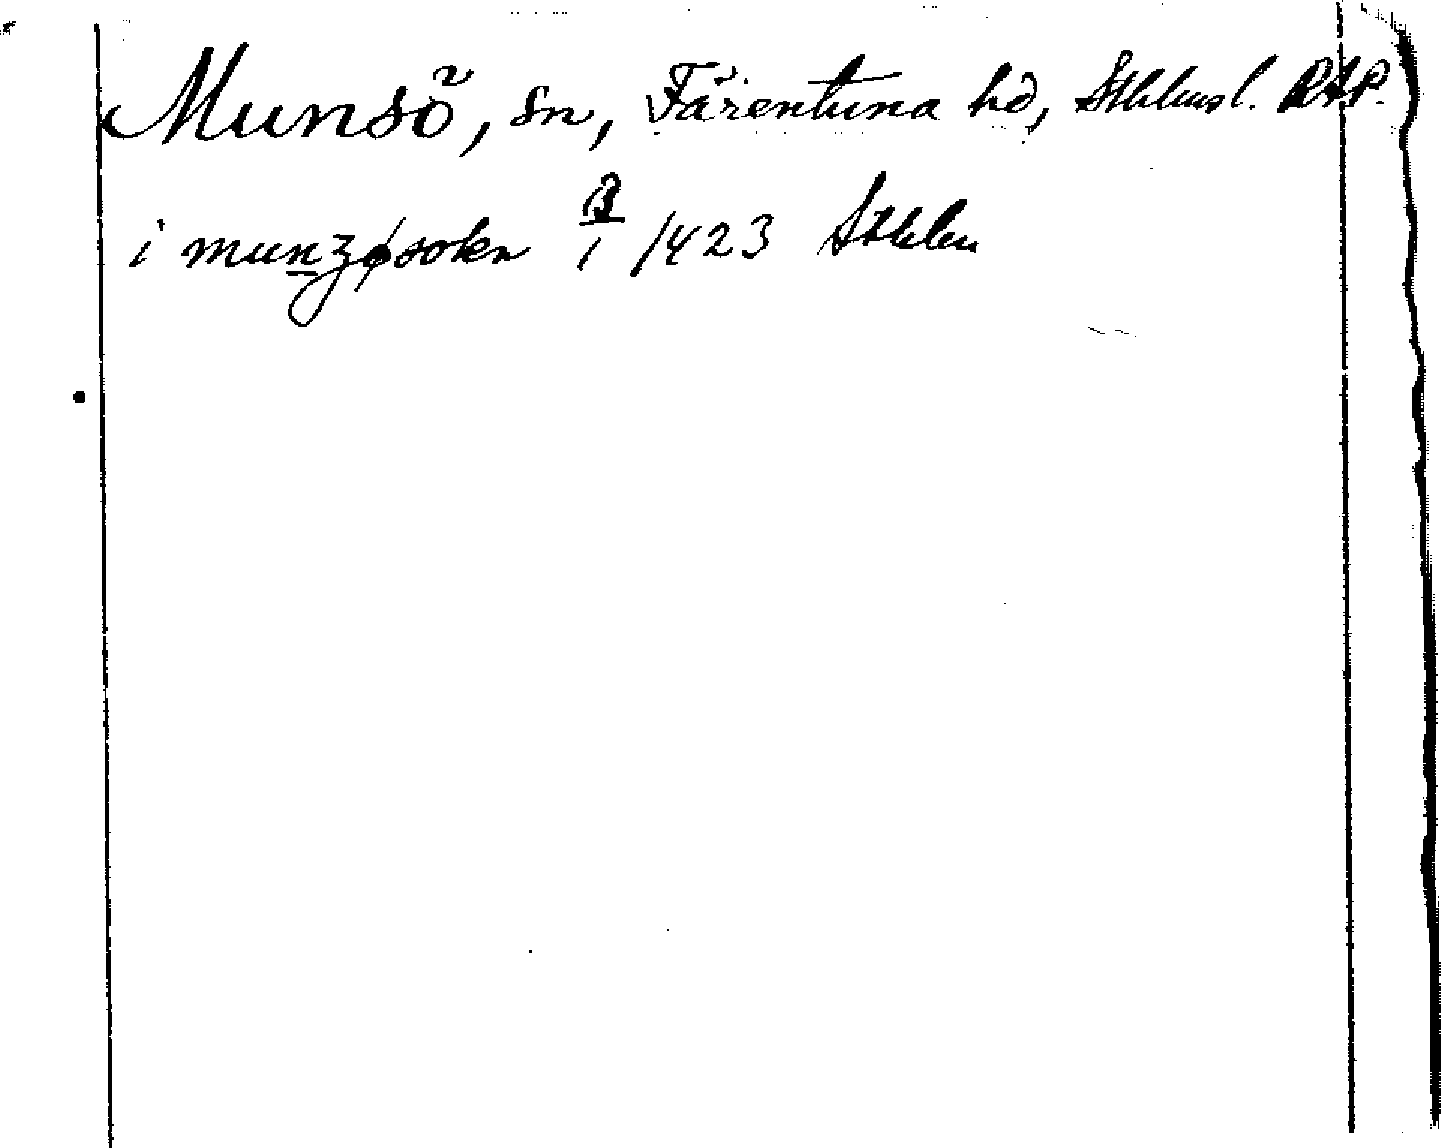 Munsö, sn, Färentuna hd, Sthlms l. RAP.
i munzøsokn 3/1 1423 Sthlm